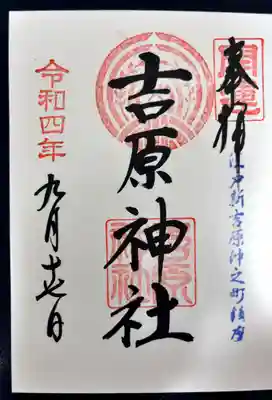 開運
奉拝
江戸新吉原仲之町鎮座
吉原神社
令和四年
九月十七日